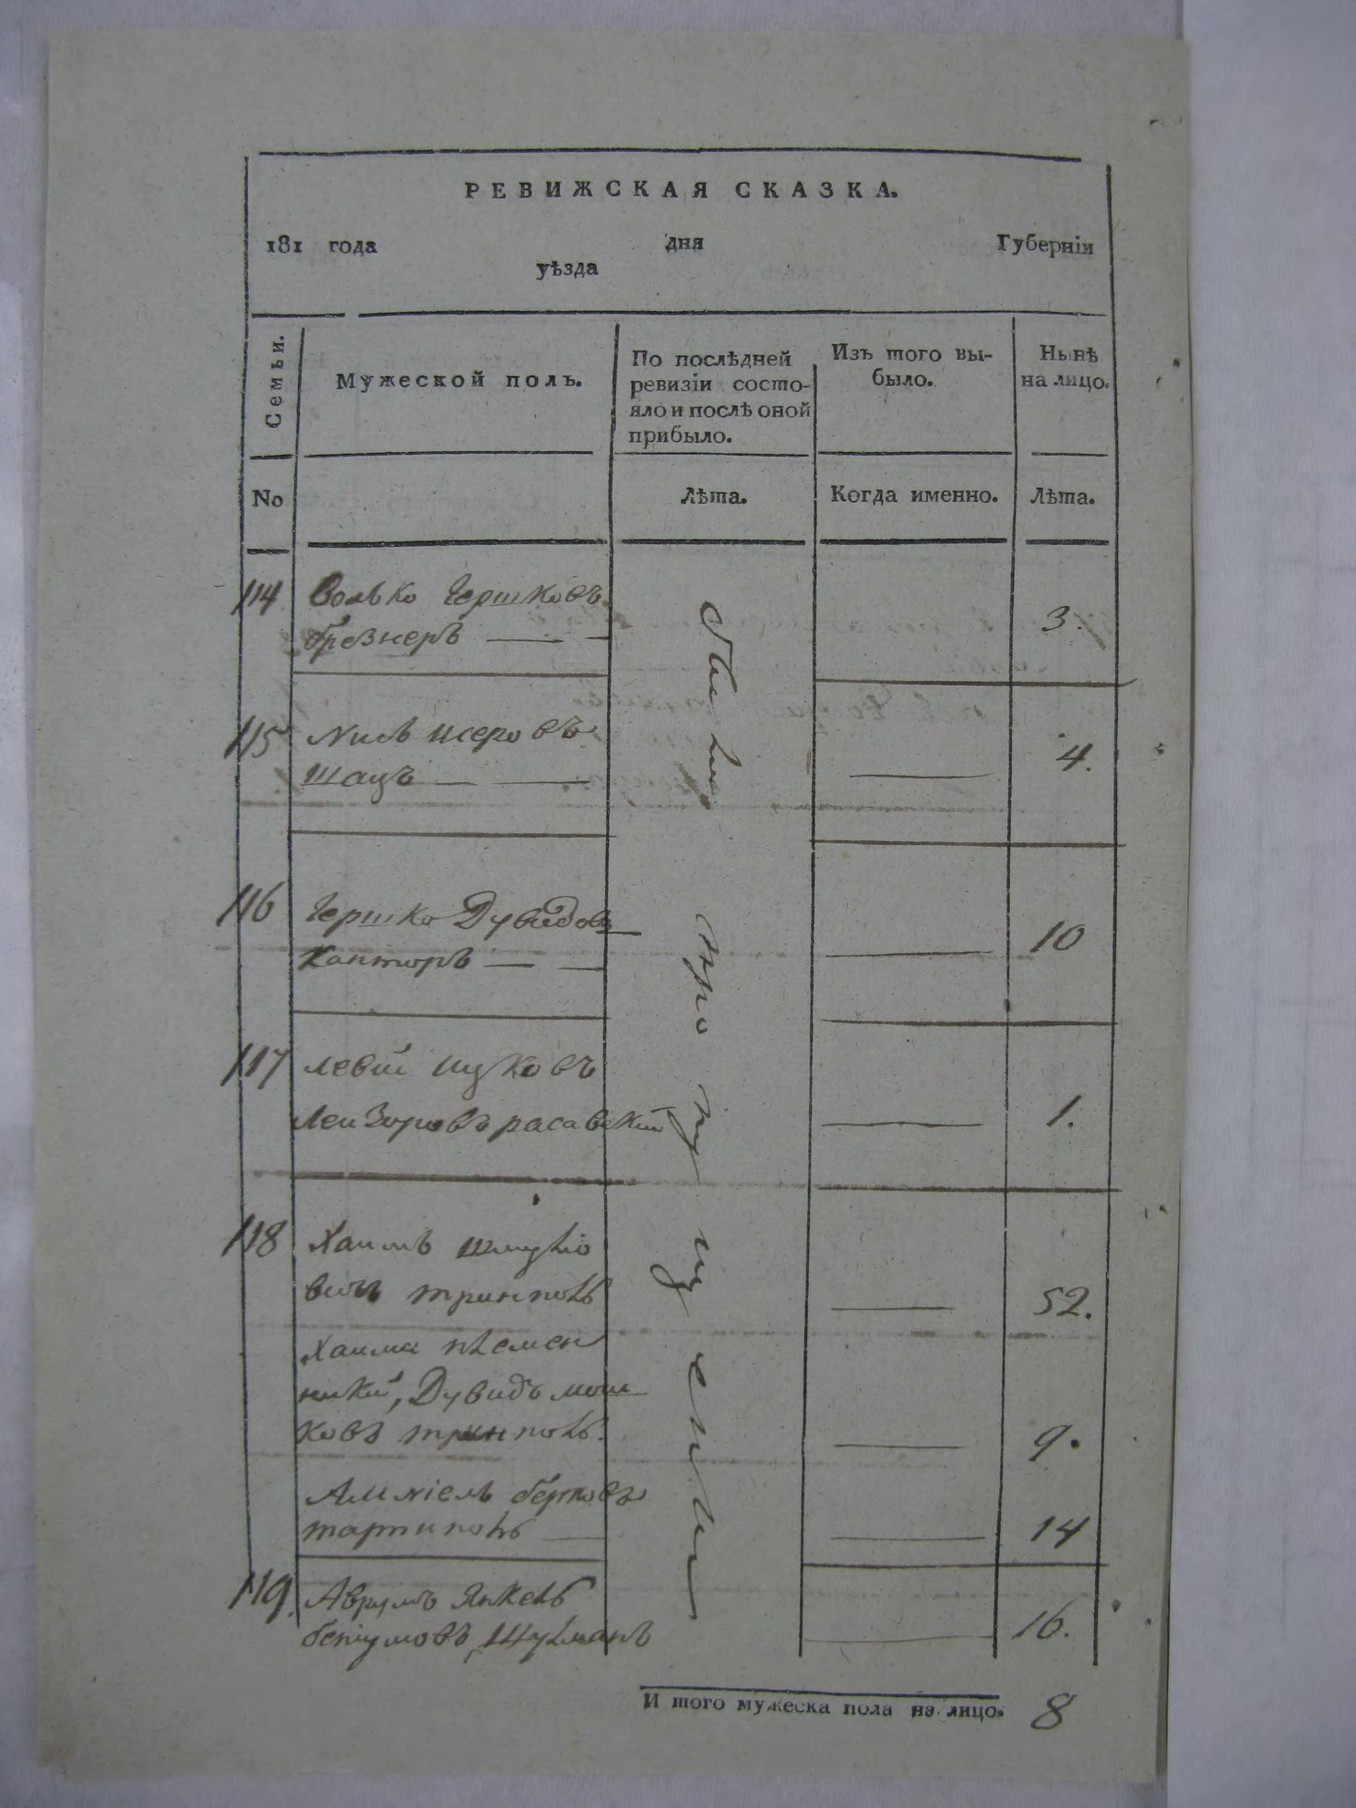 РЕВИЖСКАЯ СКАЗКА.
181 года дня Губерніи
уѣзда
Семьи.
Мужеской полъ.
По послѣдней
ревизіи состо-
яло и послѣ оной
прибыло.
Изъ того вы-
было.
Нынѣ
на лицо.
No
Лѣта.
Когда именно.
Лѣта.
114 Волько Гершковъ
брезнеръ 3.
115 Исеровъ
Шацъ 4.
116 Гершко Дувидовъ
Канторъ 10
117 Левій Ицковъ
Лейзоровъ расавскій 1.
118 Хаимъ Шмуліо
вичь тринполь 52.
Хаима племен
никъ, Дувидъ мош
ковъ тринполь. 9.
берковъ
14
119. Аврумъ Янкель
беніумовъ Шульманъ 16.
были пропущенны
И того мужеска пола на лицо. 8